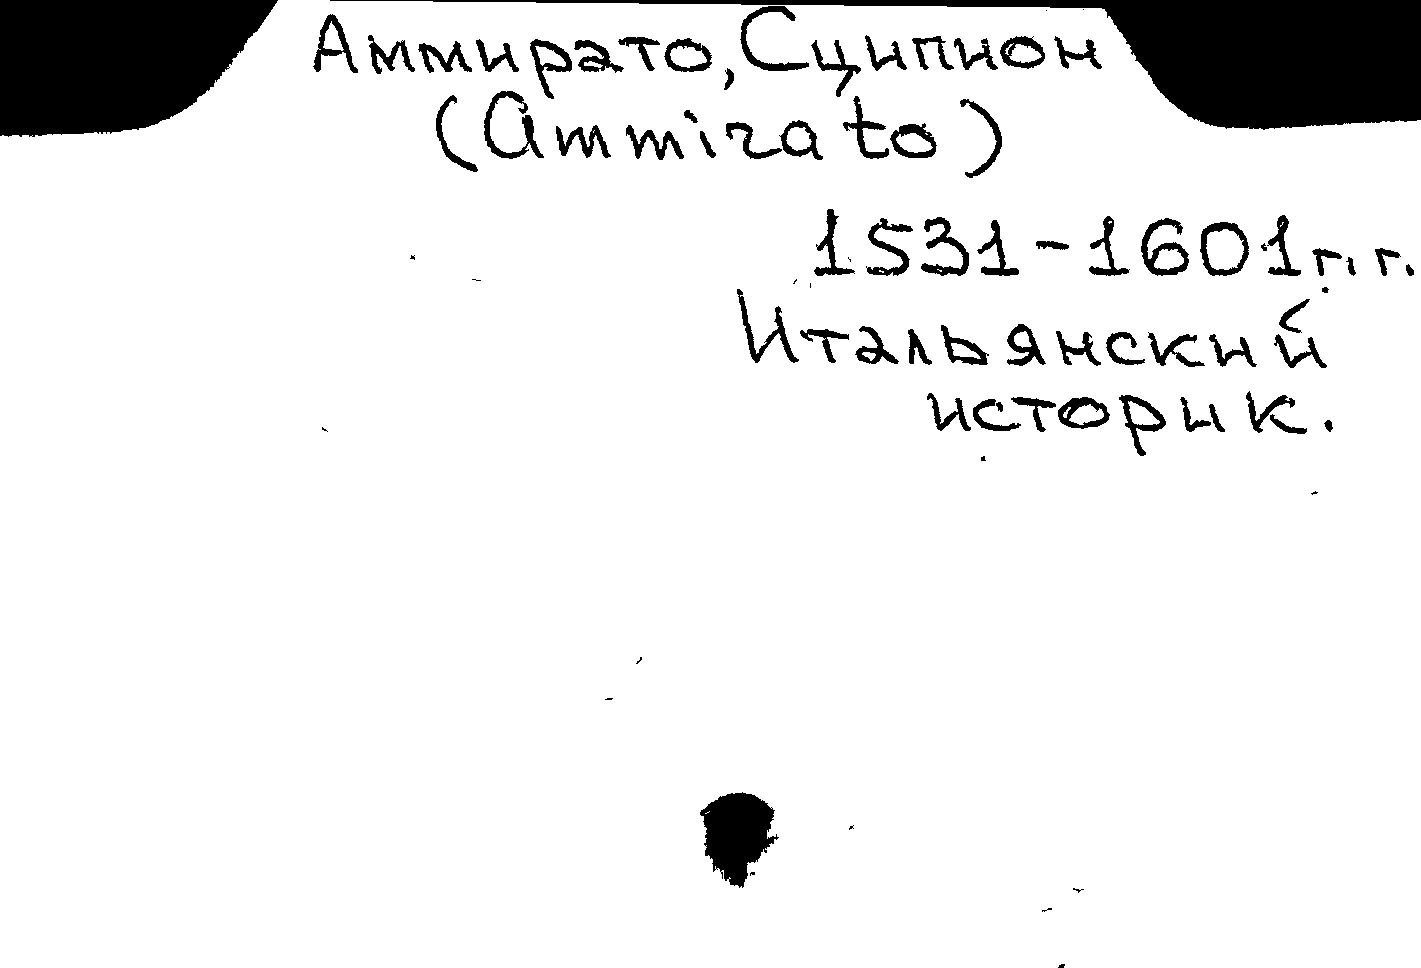 Аммирато, Сципион
(Ammirato)
1531-1601 г.г.
Итальянский
историк.